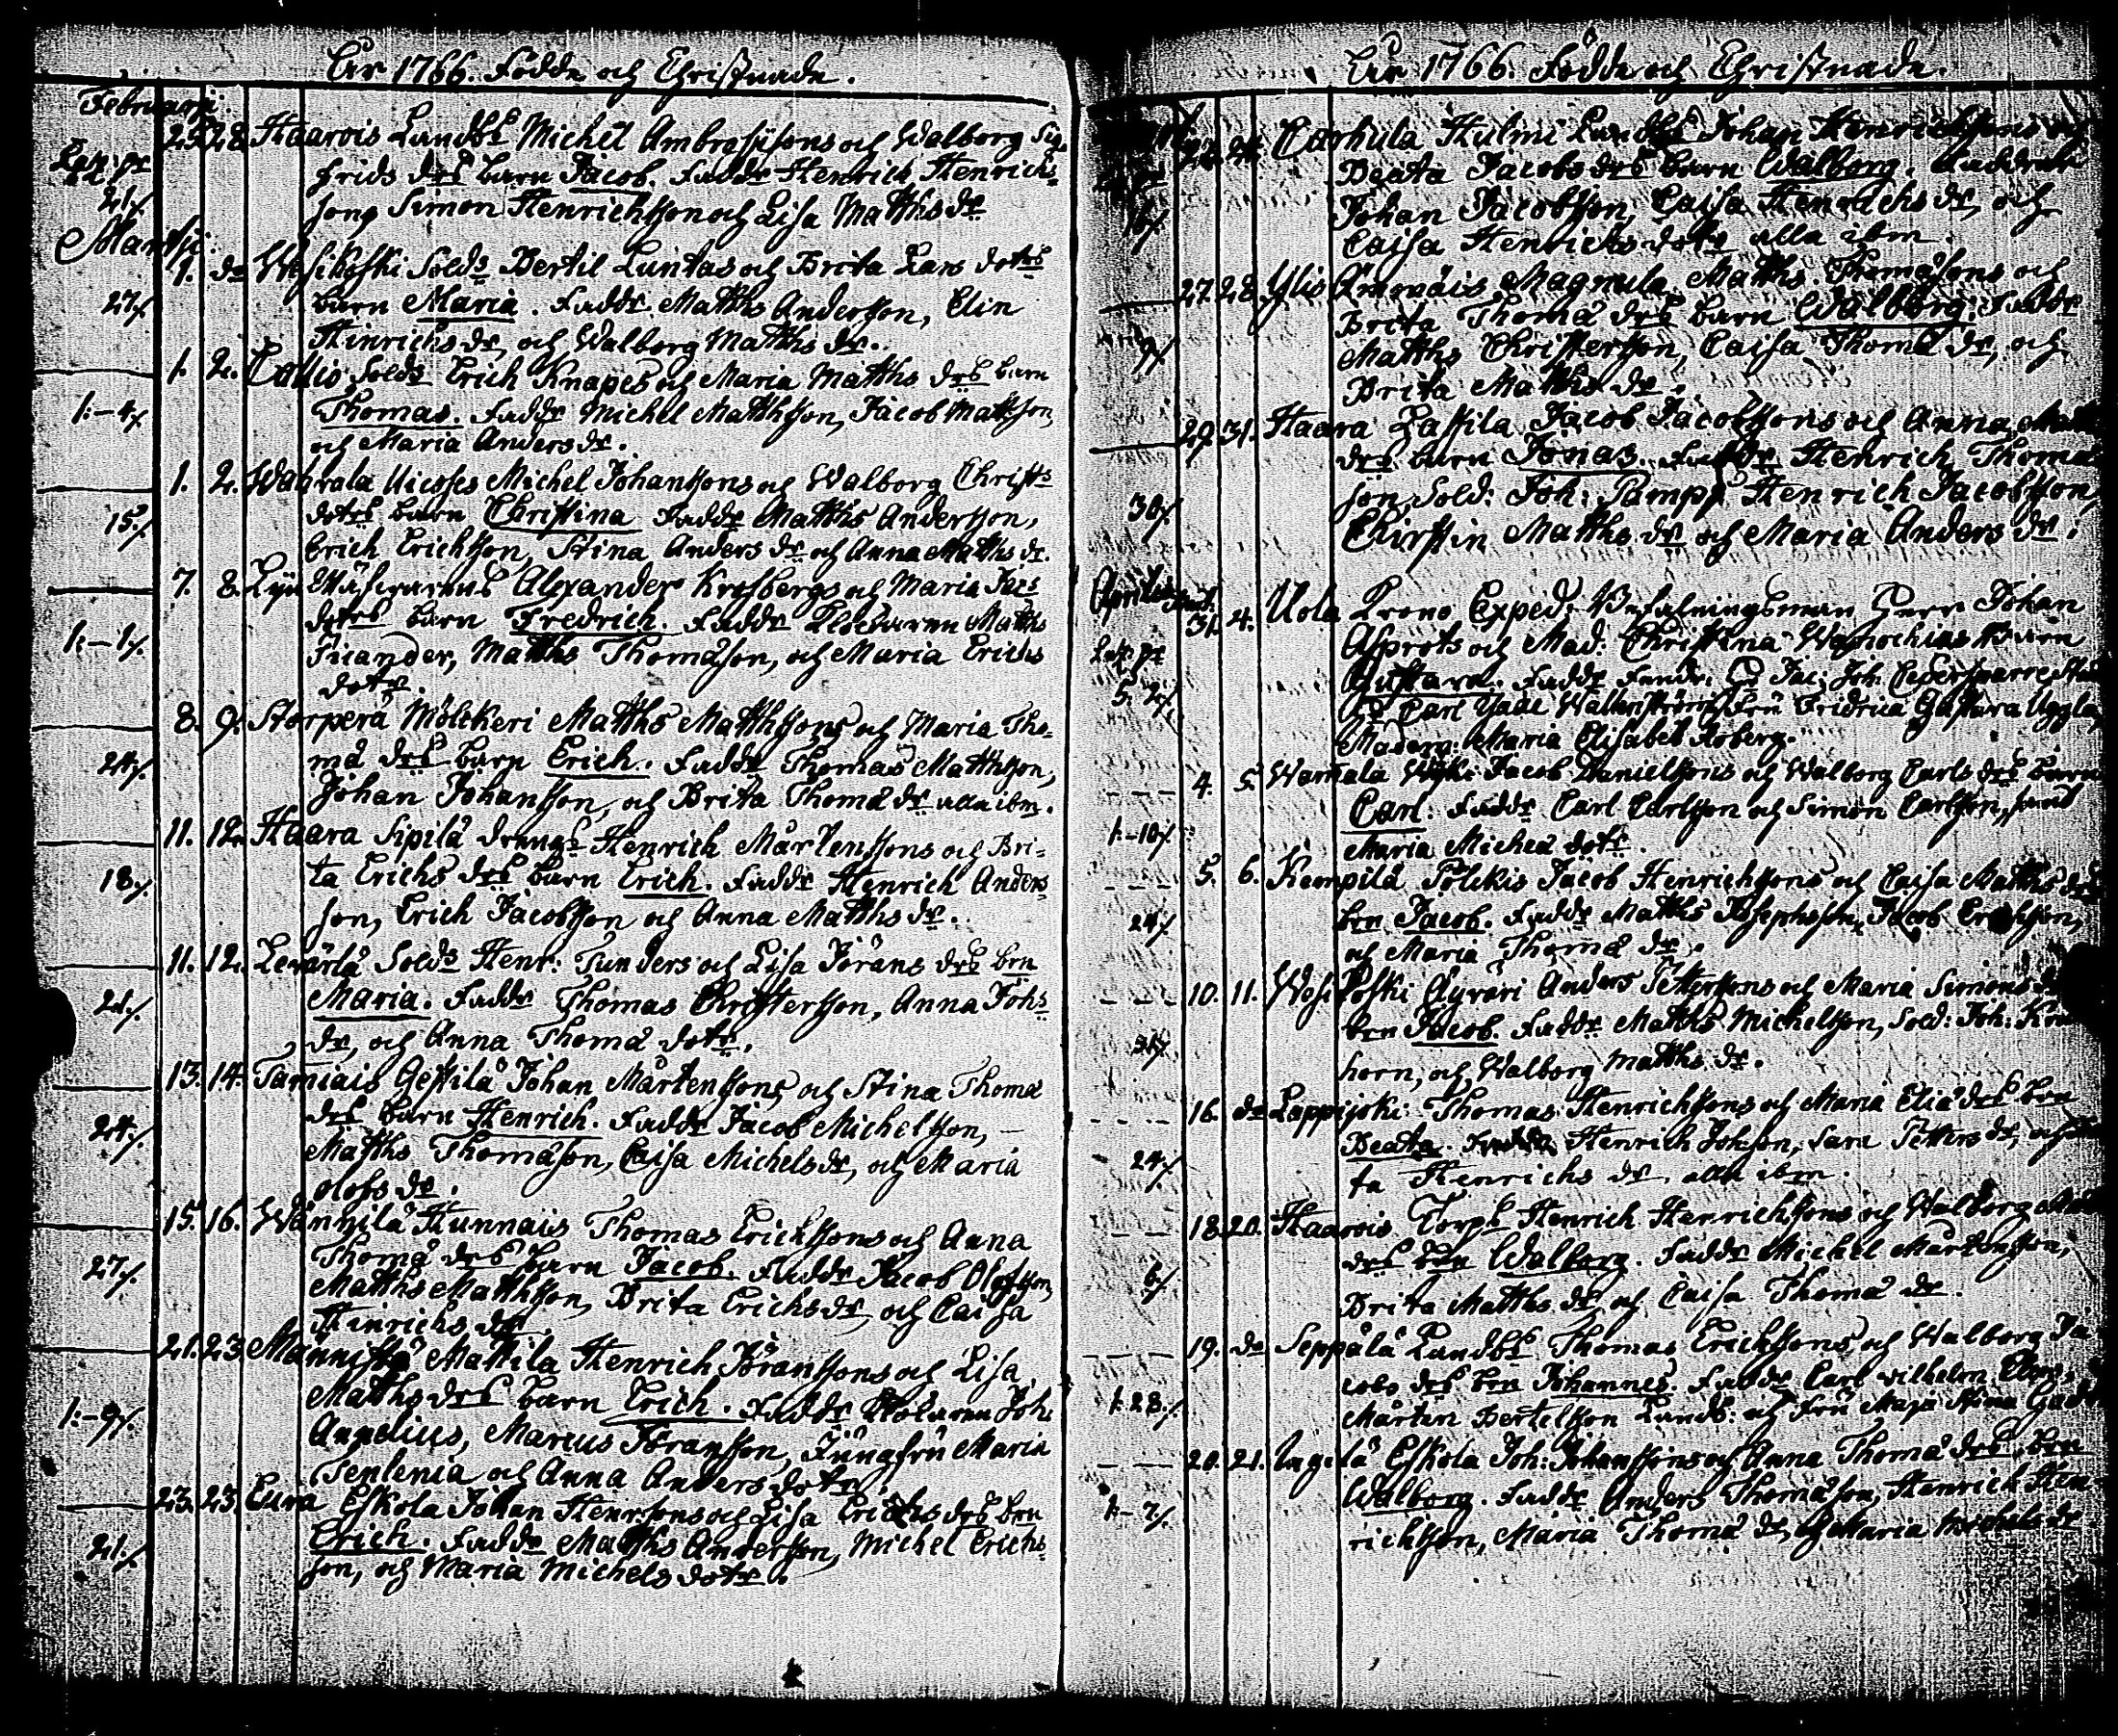 År 1766. Födde och Christnade.
Februarij.
25. 28. Haarois Landb: Michel Ambrosijsons och Walborg Sig-
frids drs barn Jacob. Faddr Henrich Henrichs-
son, Simon Henrichsson och Lisa Matths dr
21/.
Martij.
1. do Wesikoski Sold: Bertil Luntas och Brita Lars dotrs
27/. barn Maria. Faddr Matths Andersson, Elin
Hinrichs dr, och Walborg Matths dr.
1. 2. Sold: Erich Knapes och Maria Matths drs barn
1:-4/. Thomas. Faddr Michel Matthsson, Jacob Mattsson
och Maria Anders dr.
1. 2. Michel Johanssons och Walborg Christs
15/. dotrs barn Christina Faddr Matths Andersson,
Erich Erichsson, Stina Anders dr och Anna Matths dr.
7. 8. Alexander Krosbergs och Maria
dotrs barn Fredrich. Faddr Klockaren Matths
1:-1/. Matths Thomasson, och Maria Erichs
dotr.
8. 9. Storperä Mölckeri Matths Matthssons och Maria Tho-
24/. mä drs barn Erich. Faddr Thomas Matthsson,
Johan Johansson, och Brita Thomä dr alla ibm.
11. 12. Haara Sipilä Henrich Mårtenssons och Bri-
18/. ta Erichs drs barn Erich. Faddr Henrich Anders
son, Erich Jacobsson och Anna Matths dr.
11. 12. Sold: Henr: Tunders och Lisa Jörans drs brn
21/. Maria. Faddr Thomas Christersson, Anna Johs
dr, och Anna Thomä dotr.
13. 14. Tamiais Gestilä Johan Mårtenssons och Stina Thomä
24/. drs barn Henrich. Faddr Jacob Michelsson,
Matths Thomasson, Caisa Michels dr, och Maria
olofs dr.
15. 16. Wännilä Hunnais Thomas Erichssons och Anna
27/. Thomä drs barn Jacob. Faddr Jacob Olofsson
Matths Matthsson, Brita Erichs dr och Caisa
Hinrichs dr
21. 23. Mattila Henrich Jöranssons och Lisa
1:-9/. Matths drs barn Erich. Faddr Johs
Marcus Jöransson, Jungfru Maria
och Anna Anders dotr
23. 23. Eura Eskola Johan Henrssons och Lisa Erichs drs brn
21/. Erich. Faddr Matths Andersson, Michel Erichs-
son, och Maria Michels dotr.
År 1766. Födde och Christnade.
Hulmi Johan Henrichssons och
Beata Jacobs drs barn Walborg.
16/. Johan Jacobsson, Caisa Henrichs dr, och
Caisa Henrichs dotr alla ibm.
27. 28. Matths Thomasons och
Brita Thomä drs barn Walborg. Faddr
9/. Matths Christersson, Caisa Thomä dr, och
Brita Matths dr.
29. 31. Haara Lassila Jacob Jacobssons och Anna
drs barn Jonas. Faddr Henrich Thomas
30/. son, Sold: Joh: Pamp, Henrich Jacobsson,
Chirstin Matths dr och Maria Anders dr.
Aprilis
31. 4. Uola Krono Exped: Befalningsman Herr Johan
Asprots och Mad: Christina barn
5. 2/. Gustava. Faddr
Carl Fru Gustava Uggla,
Madem: Maria Elisabet Asberg.
4. 5. Wamala Jacob Danielssons och Walborg Carls drs barn
1:-10/. Carl. Faddr Carl Carlsson och Simon Carlsson, samt
Maria Michels dotr.
5. 6. Kempilä Polckis Jacob Henrichssons och Caisa Matths drs
24/. brn Jacob. Faddr Matths Josephsson, Jacob
och Maria Thomä dr.
10. 11. Anders Pettersons och Maria Simons
brn Jacob. Faddr Matths Michelsson, Sold: Joh:
horn, och Walborg Matths dr.
16. do Lappijoki Thomas Henrichssons och Maria Eliä drs brn
24/. Beata. Faddr Henrich Johsson, Sara Petters dr, och
ta Henrichs dr alla ibm.
18. 20. Haarois Torp: Henrich Henrichssons och Walborg
6/. drs brn Walborg. Faddr Michel Mårtensson,
Brita Matths dr och Caisa Thomä dr.
19. do Seppälä Landb: Thomas Erichssons och Walborg Ja-
cobs drs brn Johannes. Faddr Carl vilhelm
1:28/. Mårten Bertelsson Landb: och Fru Maja Stina
20. 21. Eskola Joh: Johanssons och Anna Thomä drs brn
1:-7/. Walborg. Faddr Anders Thomason, Henrich Hen-
richsson, Maria Thomä dr, och Maria Michels dr